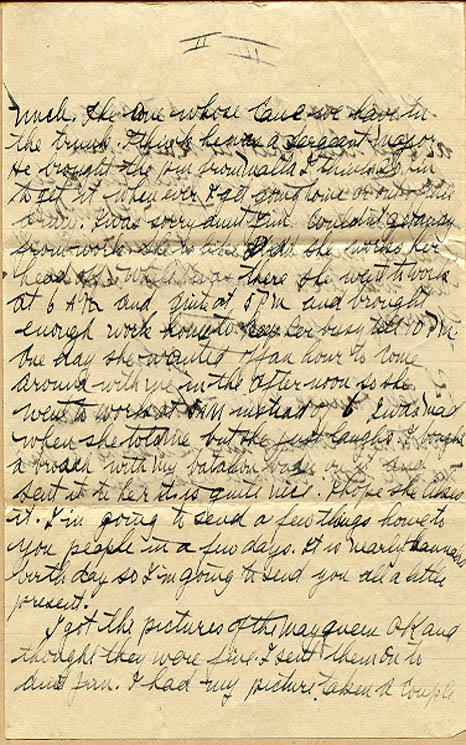 II
much. The one whose cane we have in
the trunk. I think he was a sergeant major
He brought the pin from malta I think
to get it when ever I get
I was sorry aunt Jan couldn't get away
from work she is like Pa she works her
head off. When I was there she went to work
at 6 AM and quit at 5 PM and brought
enough work home to keep her busy till 10 PM
One day she wanted off an hour to come
around with me in the afternoon so she
went to work at 5AM instead of 6 I was mad
when she told me but she just laughs. I bought
a broach with my batalion badge on it and
sent it to her it is quite nice. I hope she likes
it. I'm going to send a few things home to
you people in a few days. It is nearly
birthday so I'm going to send you all a little
present.
I got the pictures of the may queen OK and
thought they were fine. I sent them on to
aunt Jan. I had my picture taken a couple